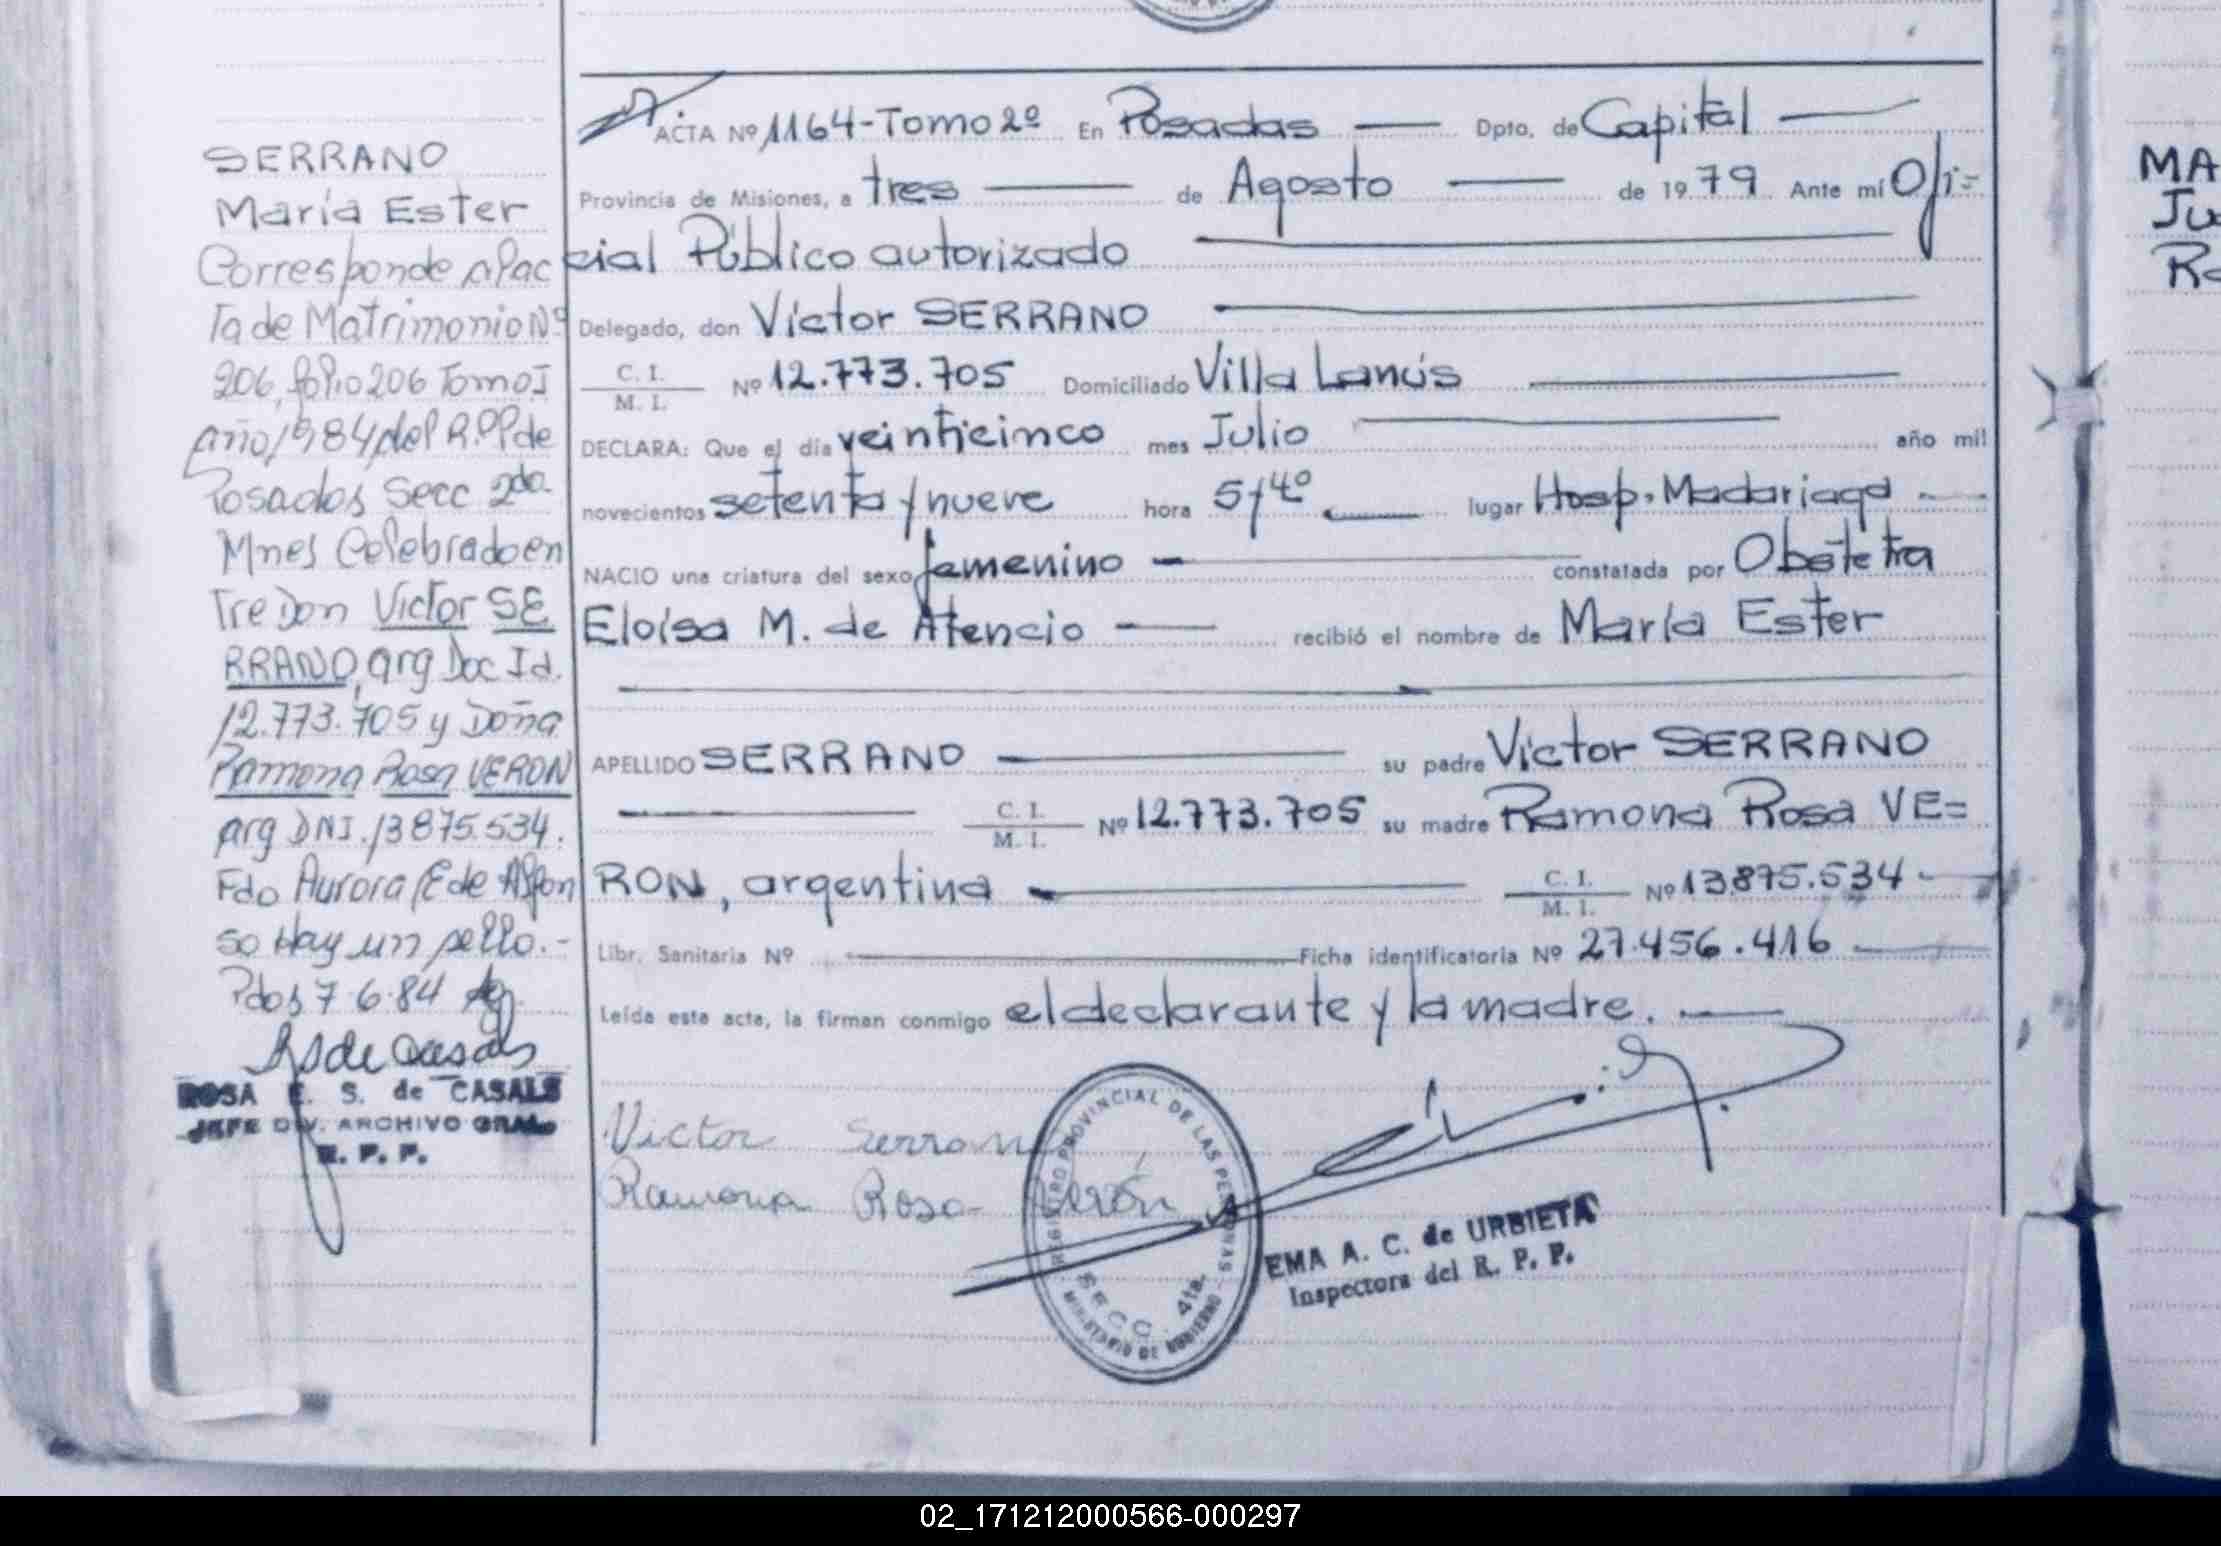 SERRANO
María Ester
Corresponde al ac
ta de Matrimonio Nº
206, folio 206 Tomo I
año 1984 del R.P.P de
Posadas Secc 2da
Mnes Celebrado en
tre Don Victor SE
RRANO, arg Doc Id.
12.773.705 y Doña
Ramona Rosa VERON
arg DNI. 13875.534.
Fdo Aurora E de Alfon
so Hay un sello.-
Pdas 7.6.84
RS de Casals
ROSA E. S. de CASALS
JEFE DIV. ARCHIVO GRAL.
R. P. P.
ACTA Nº 1164-Tomo 2º En Posadas Dpto. de Capital
Provincia de Misiones, a tres de Agosto de 1979 Ante mí Ofi=
cial Público autorizado
Delegado, don Víctor SERRANO
C. I.
M. I.
Nº 12.773.705 Domiciliado Villa Lanús
DECLARA: Que el día veinticinco mes Julio año mil
novecientos setenta y nueve hora 5,4º lugar Hosp. Madariaga
NACIO una criatura del sexo femenino constatada por Obstetra
Eloísa M. de Atencio recibió el nombre de María Ester
APELLIDO SERRANO su padre Víctor SERRANO
C. I.
M. I.
Nº 12.773.705 su madre Ramona Rosa VE=
RON, argentina C. I.
M. I.
Nº 13.875.534
Libr. Sanitaria Nº Ficha identificatoria Nº 27.456.416
Leída esta acta, la firman conmigo el declarante y la madre.
Victor Serrano
Ramona Rosa Verón
REGISTRO PROVINCIAL DE LAS PERSONAS
SECC. 4ta.
MINISTERIO DE GOBIERNO
EMA A. C. de URBIETA
Inspectora del R. P. P.
MA
Ju
Ra
02_171212000566-000297